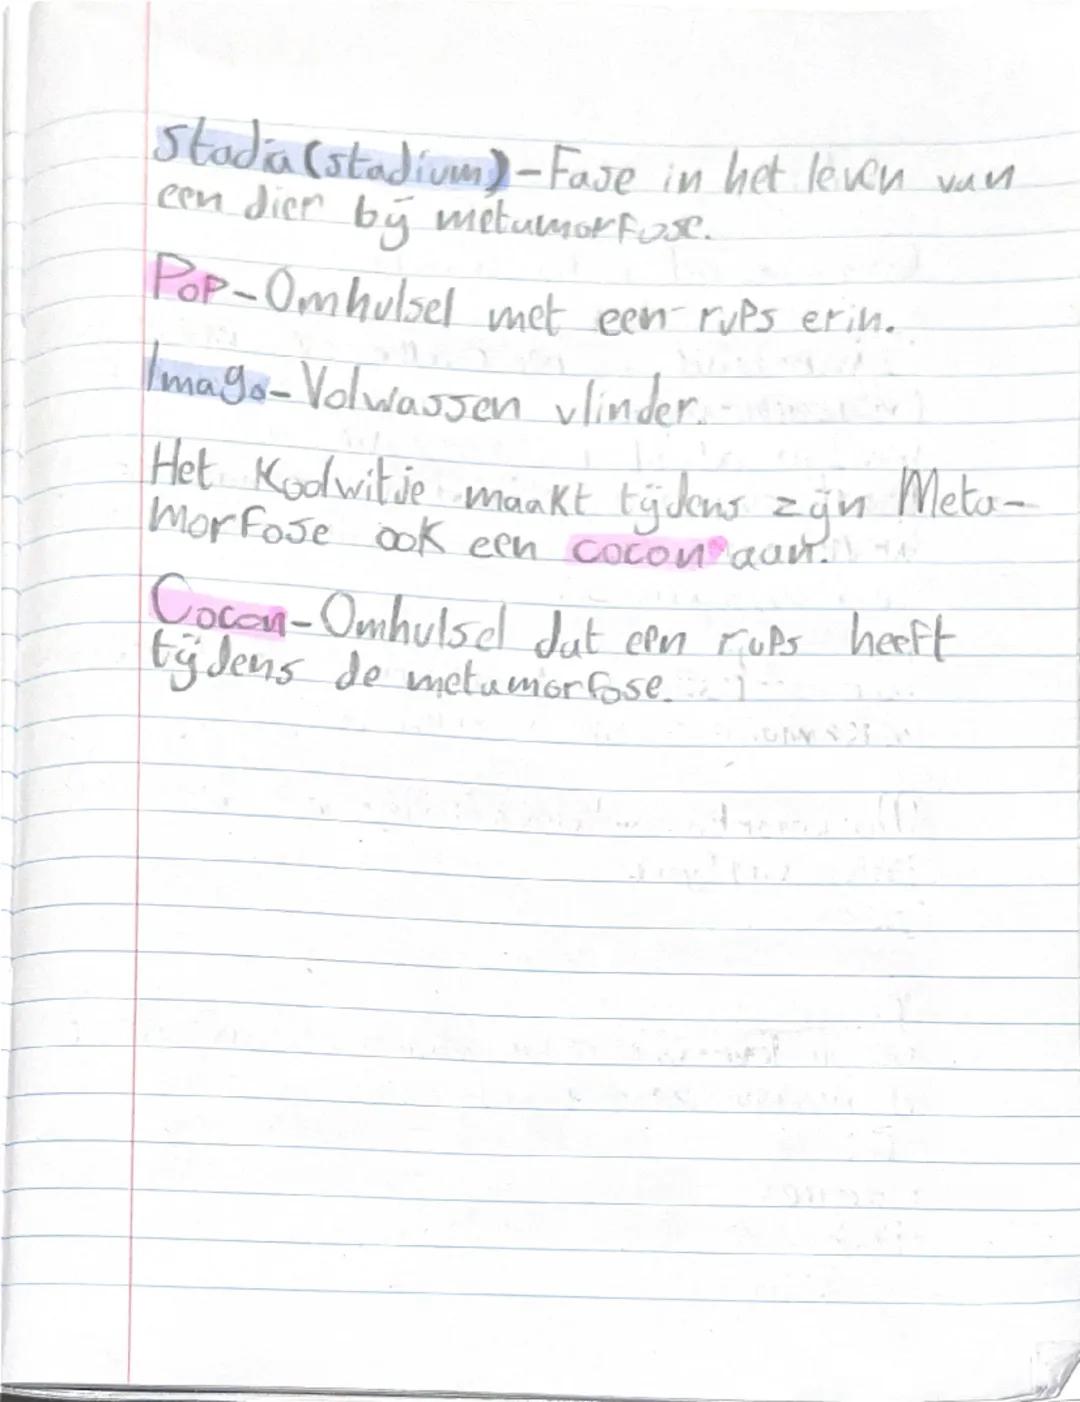 Stadia (stadium) - Fase in het leven van
een dier bij metamorfose.
Pop - Omhulsel met een rups erin.
Imago - Volwassen vlinder.
Het Koolwitje maakt tijdens zijn Meta-
morfose ook een cocon aan.
Cocon - Omhulsel dat een rups heeft
tijdens de metamorfose.